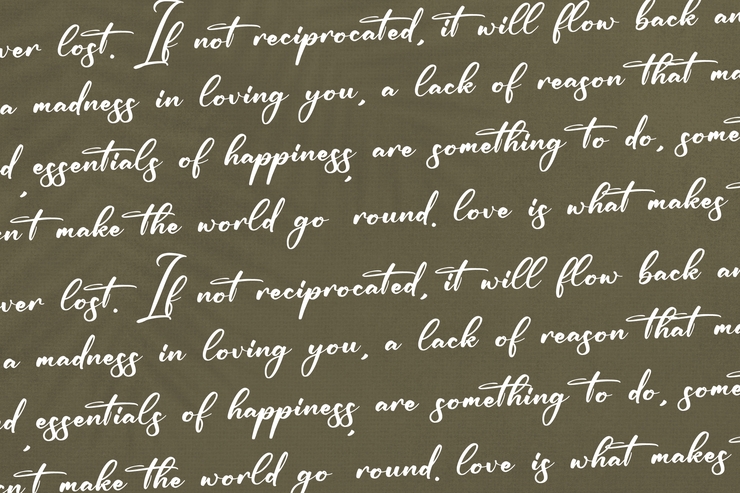 ver lost. If not reciprocated, it will flow back an
a madness in loving you, a lack of reason that ma
d, essentials of happiness are something to do, some
n't make the world go round. love is what makes
ver lost. If not reciprocated, it will flow back an
a madness in loving you, a lack of reason that ma
d, essentials of happiness are something to do, some
n't make the world go round. love is what makes